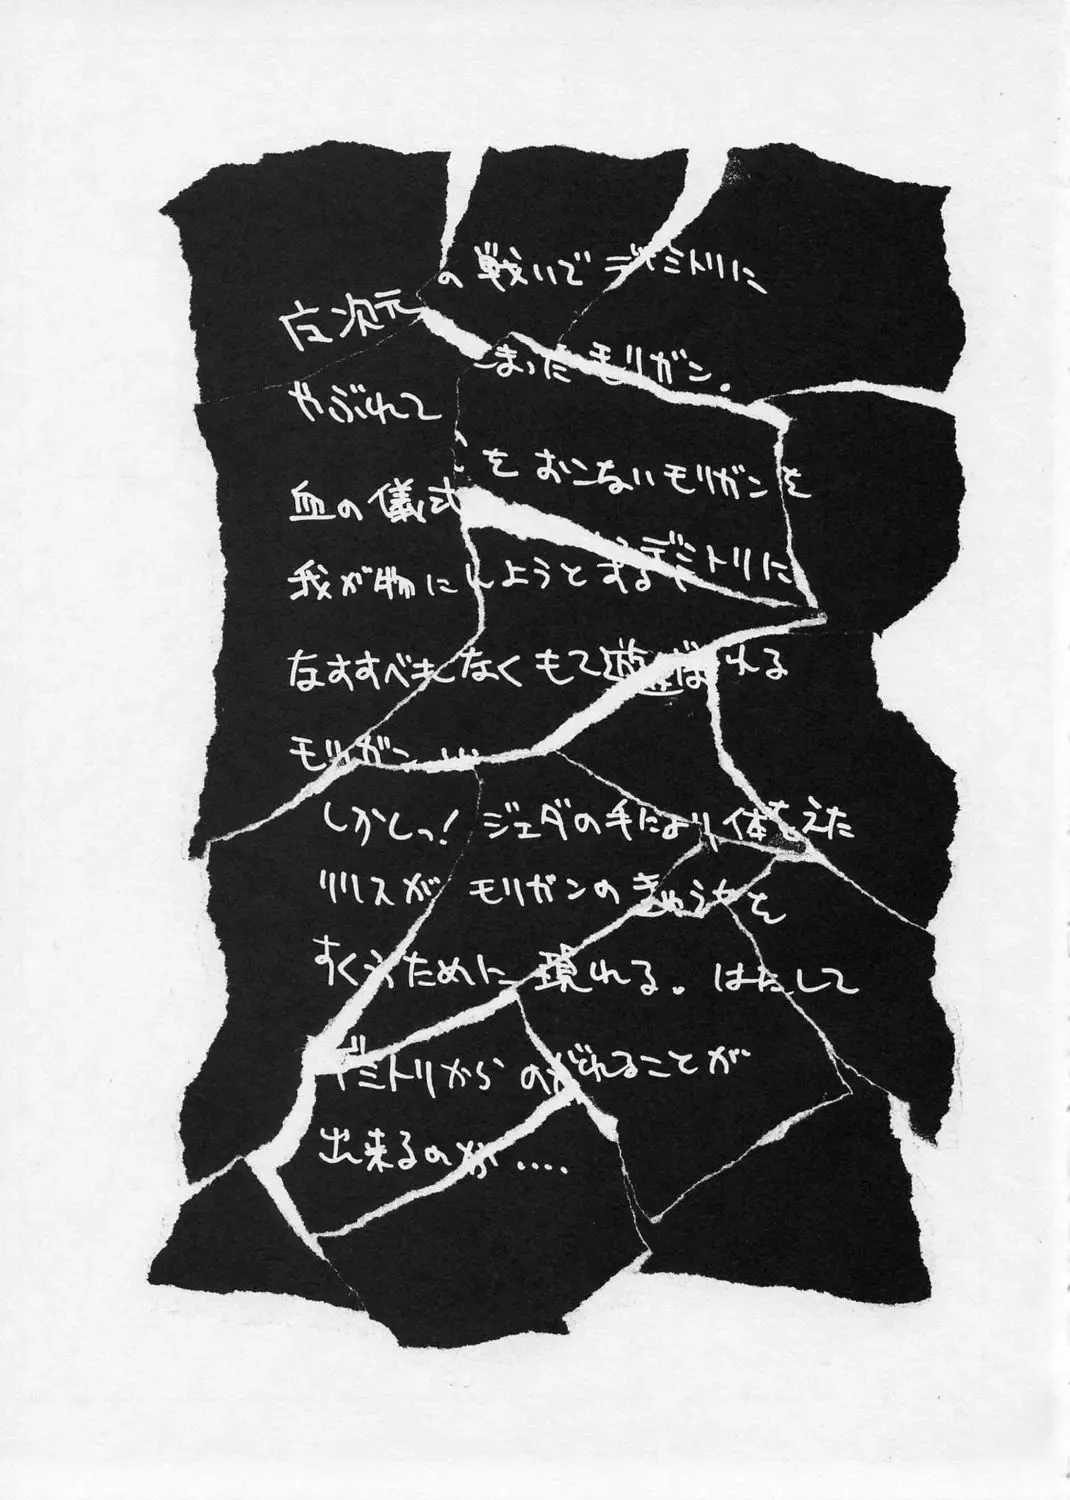 次元の戦いでデミトリに
やぶれてしまったモリガン。
血の儀式をおこないモリガンを
我が物にしようとするデミトリに
なすすべもなくもて遊ばれる
モリガン
しかしっ!ジェダの手により体をえた
リリスがモリガンのきゅうちを
すくうために現れる。はたして
デミトリからのがれることが
出来るのか....